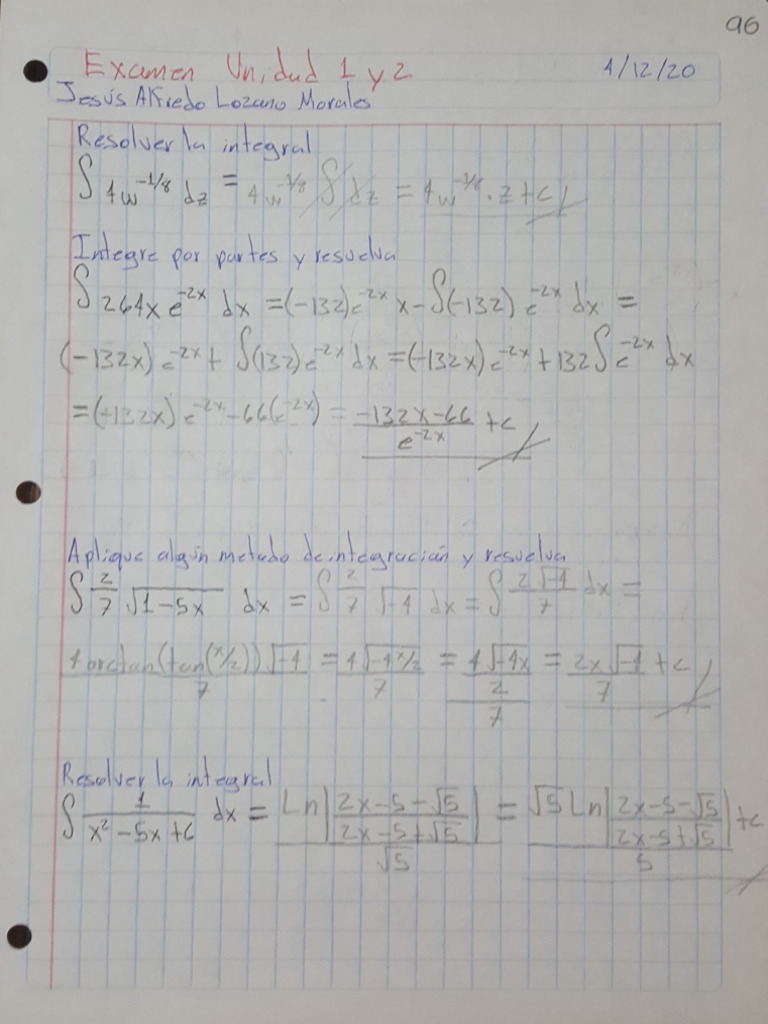 96
Examen Unidad 1 y 2 1/12/20
Jesús Alfredo Lozano Morales
Resolver la integral
∫ 4w^(-1/8) dz = 4w^(-1/8) ∫ dz = 4w^(-1/8) · z + c
Integre por partes y resuelva
∫ 264x e^(-2x) dx = (-132)e^(-2x) x - ∫(-132) e^(-2x) dx =
(-132x) e^(-2x) + ∫(132)e^(-2x) dx = (-132x)e^(-2x) + 132∫e^(-2x) dx
= (-132x) e^(-2x) - 66(e^(-2x)) = (-132x-66)/(e^(-2x)) + c
Aplique algún metado de integracián y resuelva
∫ 2/7 √(1-5x) dx = ∫ 2/7 √-4 dx = ∫ (2√-4)/7 dx =
(4 arctan(tan(x/2)) √-4)/7 = (4√-4 x/2)/7 = ((4√-4x)/2)/7 = (2x√-4)/7 + c
Resolver la integral
∫ 1/(x² - 5x + c) dx = (Ln|(2x-5-√5)/(2x-5+√5)|)/√5 = (√5 Ln|(2x-5-√5)/(2x-5+√5)|)/5 + c